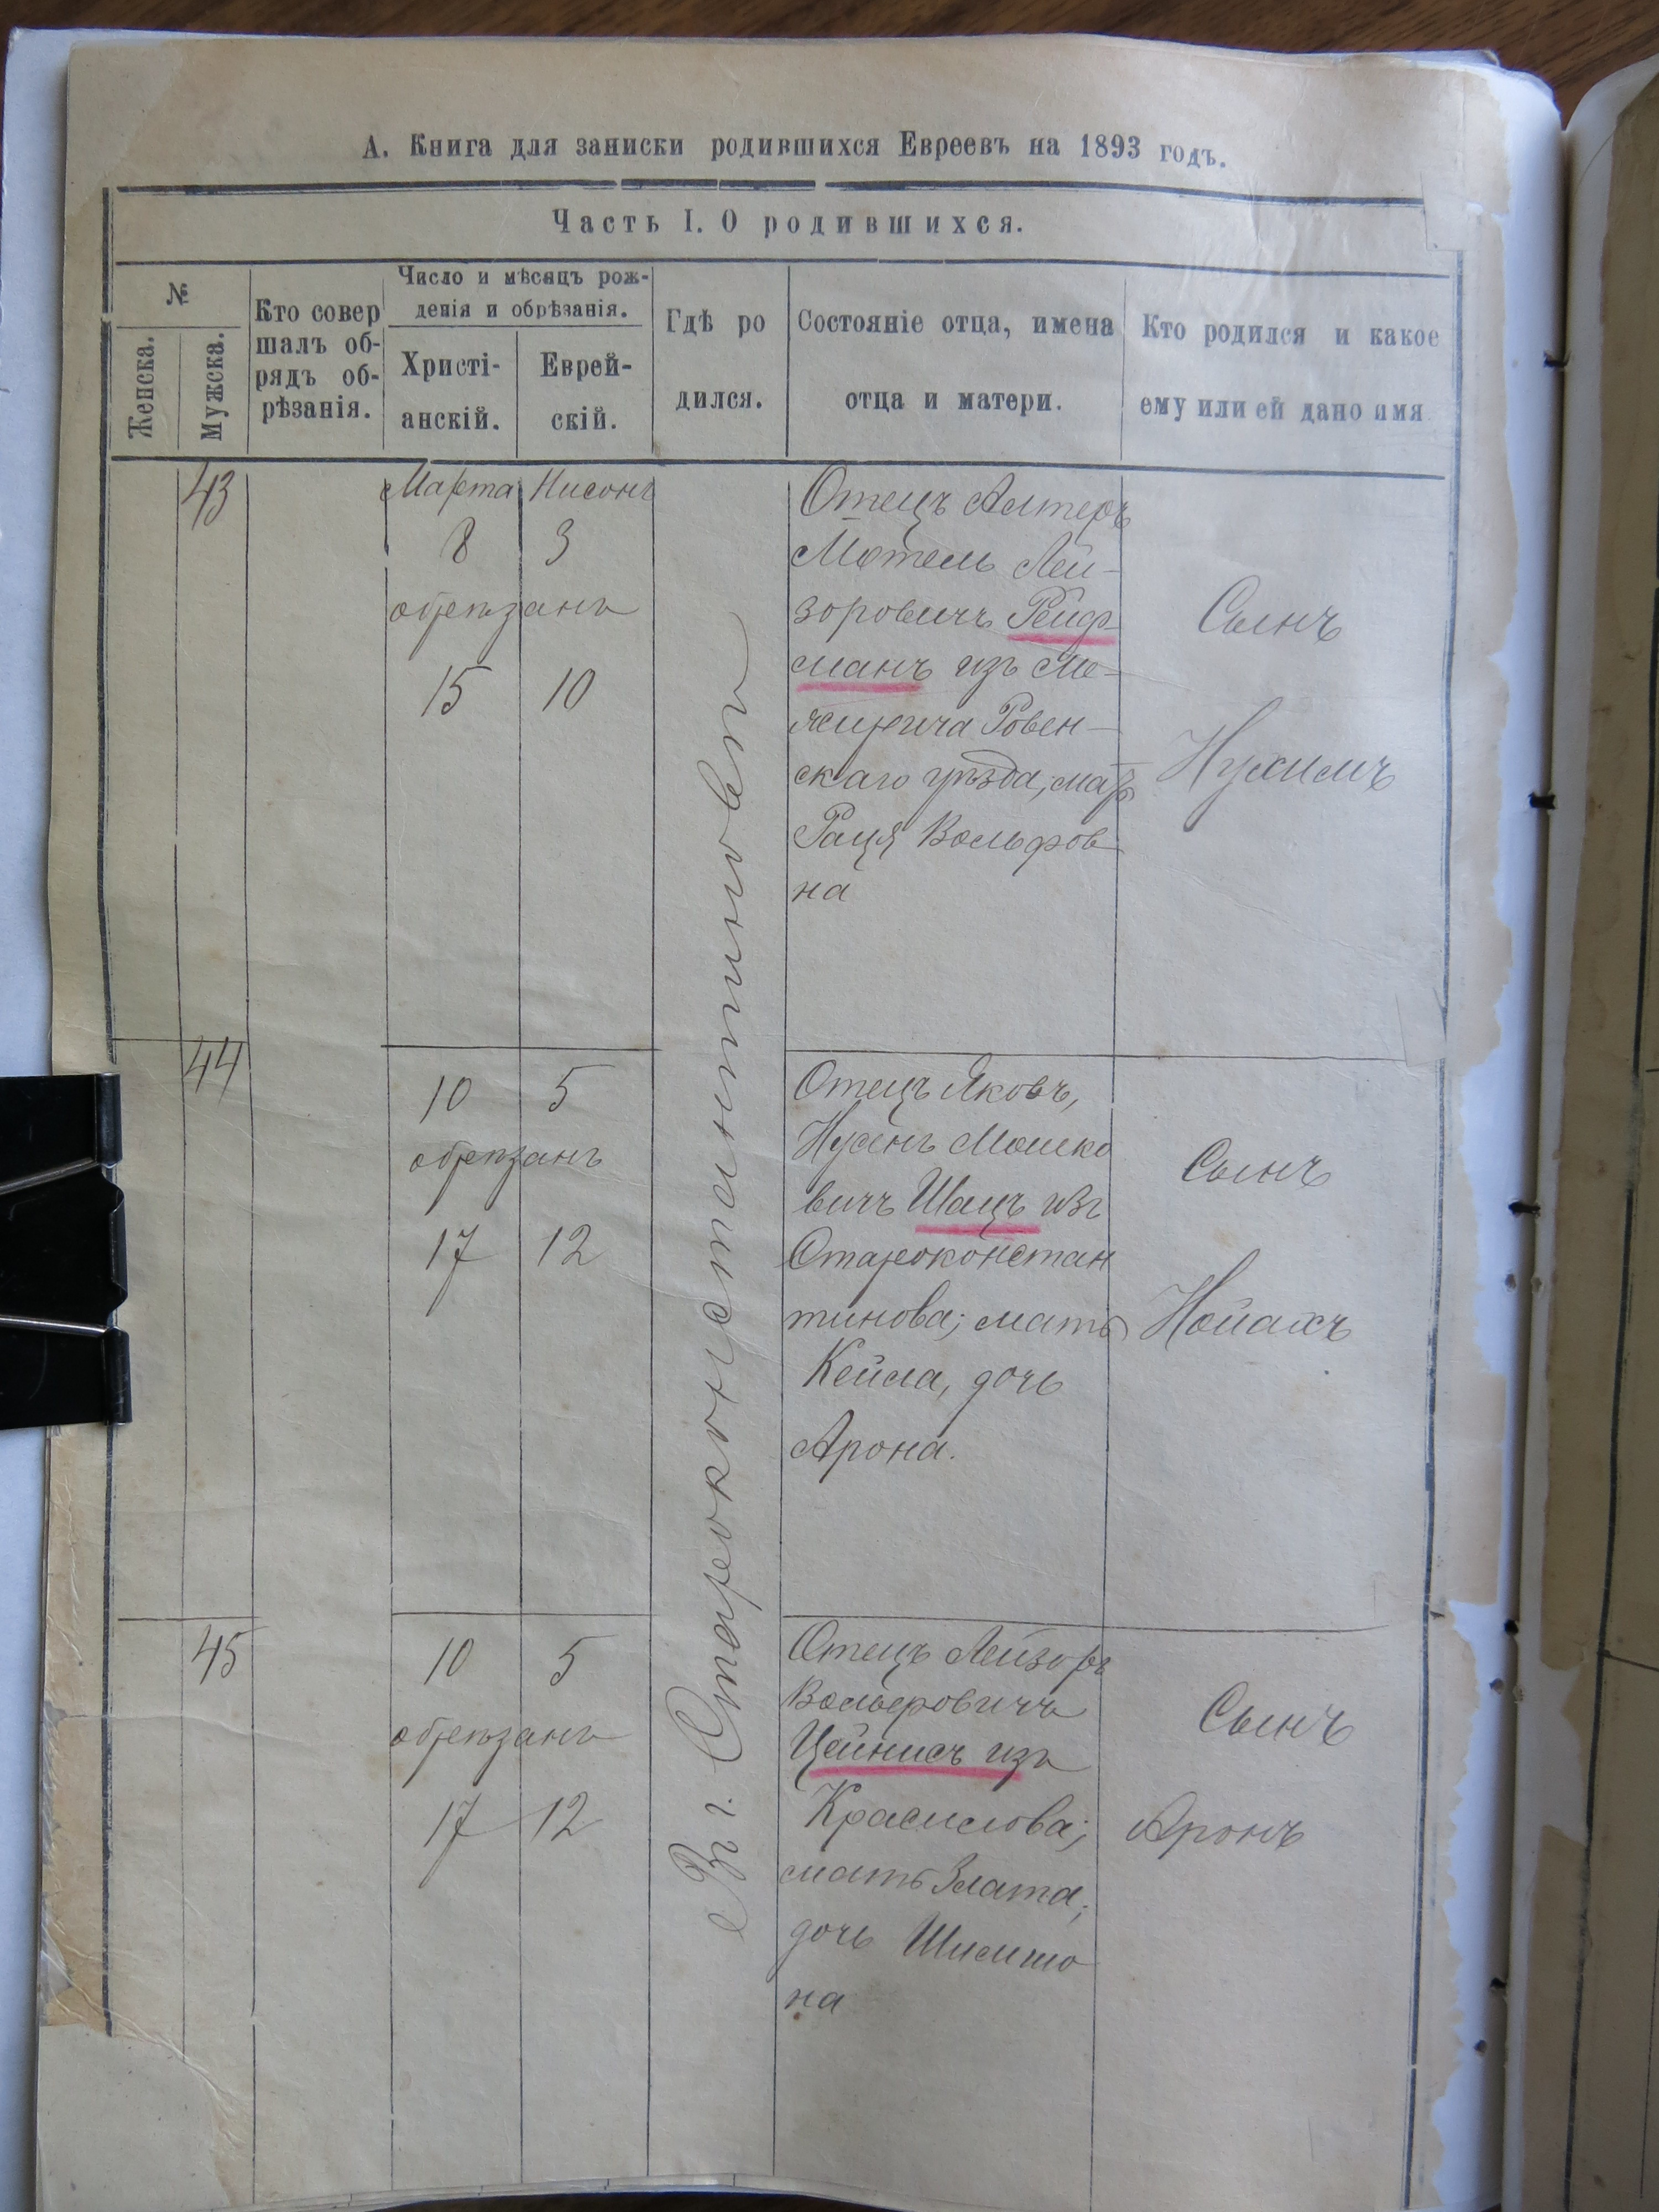 А. Книга для записки родившихся Евреевъ на 1893 годъ.
Часть I. О родившихся.
№
Женска.
Мужска.
Кто совер
шалъ об-
рядъ об-
рѣзанія.
Число и мѣсяцъ рож-
денія и обрѣзанія.
Христі-
анскій.
Еврей-
скій.
Гдѣ ро
дился.
Состояніе отца, имена
отца и матери.
Кто родился и какое
ему или ей дано имя
Въ г. Староконстантиновѣ
43
Марта Нисонъ
8 3
обрѣзанъ
15 10
Отецъ Алтеръ
Мотель Лей-
зоровичъ Рейф-
манъ изъ Ме-
жирича Ровен-
скаго уѣзда, мать
Рация Вольфов
на
Сынъ
Нухимъ
44
10 5
обрѣзанъ
17 12
Отецъ Яковъ,
Мошко
вичъ Шацъ изъ
Староконстан
тинова; мать
Кейла, дочь
Арона.
Сынъ
Нойахъ
45
10 5
обрѣзанъ
17 12
Отецъ Лейзоръ
Вольфовичъ
Цейнисъ изъ
Красилова;
мать Злата,
дочь Шлимо
на
Сынъ
Аронъ